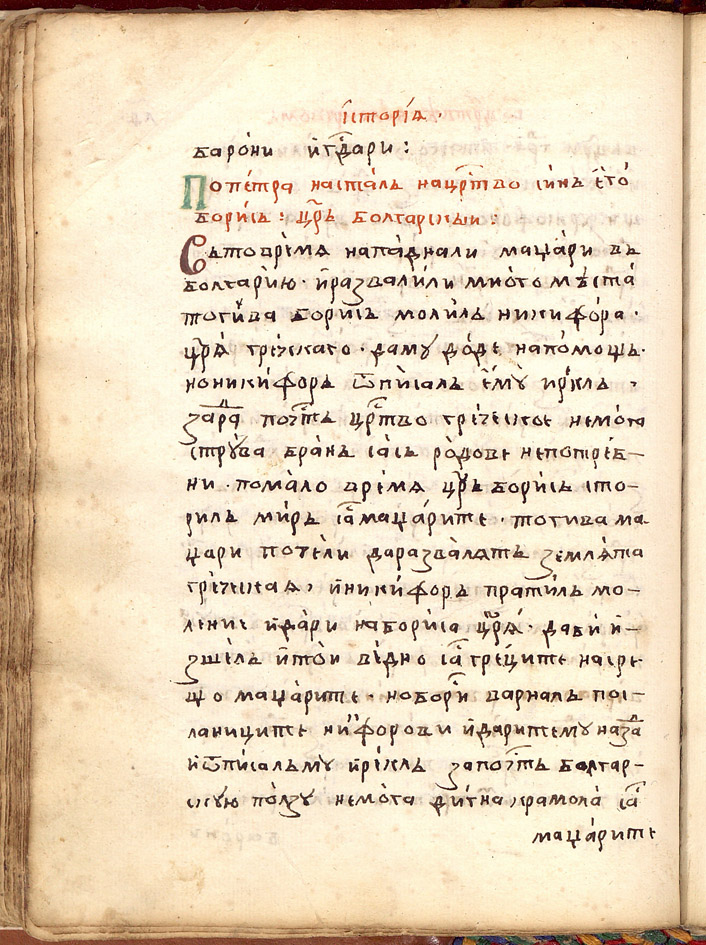 історїѧ·
барони и҆ г҇дари :
По петра насталъ на цр҇тво сн҃ъ е҆гѡ
борисъ : цр҃ъ болгарскыи :
Съ то времѧ нападнали маџари въ
болгарїю · и҆ развалили много мѣста
тогива борисъ молилъ никифора ·
цр҃ѧ греческаго · да му доде на помощъ ·
но никифоръ ѿписалъ ему и реклъ ·
зарад почт҇ъ цр҇тво греческое не мога
струва бранъ сасъ родове непотреб–
ни · по мало времѧ цр҃ъ борисъ сто–
рилъ миръ са маџарите · тогива ма
џари потели да развалѧтъ землѧта
греческаѧ, и҆ никифоръ пратилъ мо–
ление и҆ дари на бориса цр҃ѧ · да би и҆–
зшелъ и҆ тои ведно са греците на сре
що маџарите · но борис варналъ пос–
ланиците никифорови и҆ дарите му назад
и҆ ѿписалъ му и҆ реклъ за почт҇ъ болгар–
скую ползу не мога дигна крамола са
маџарите